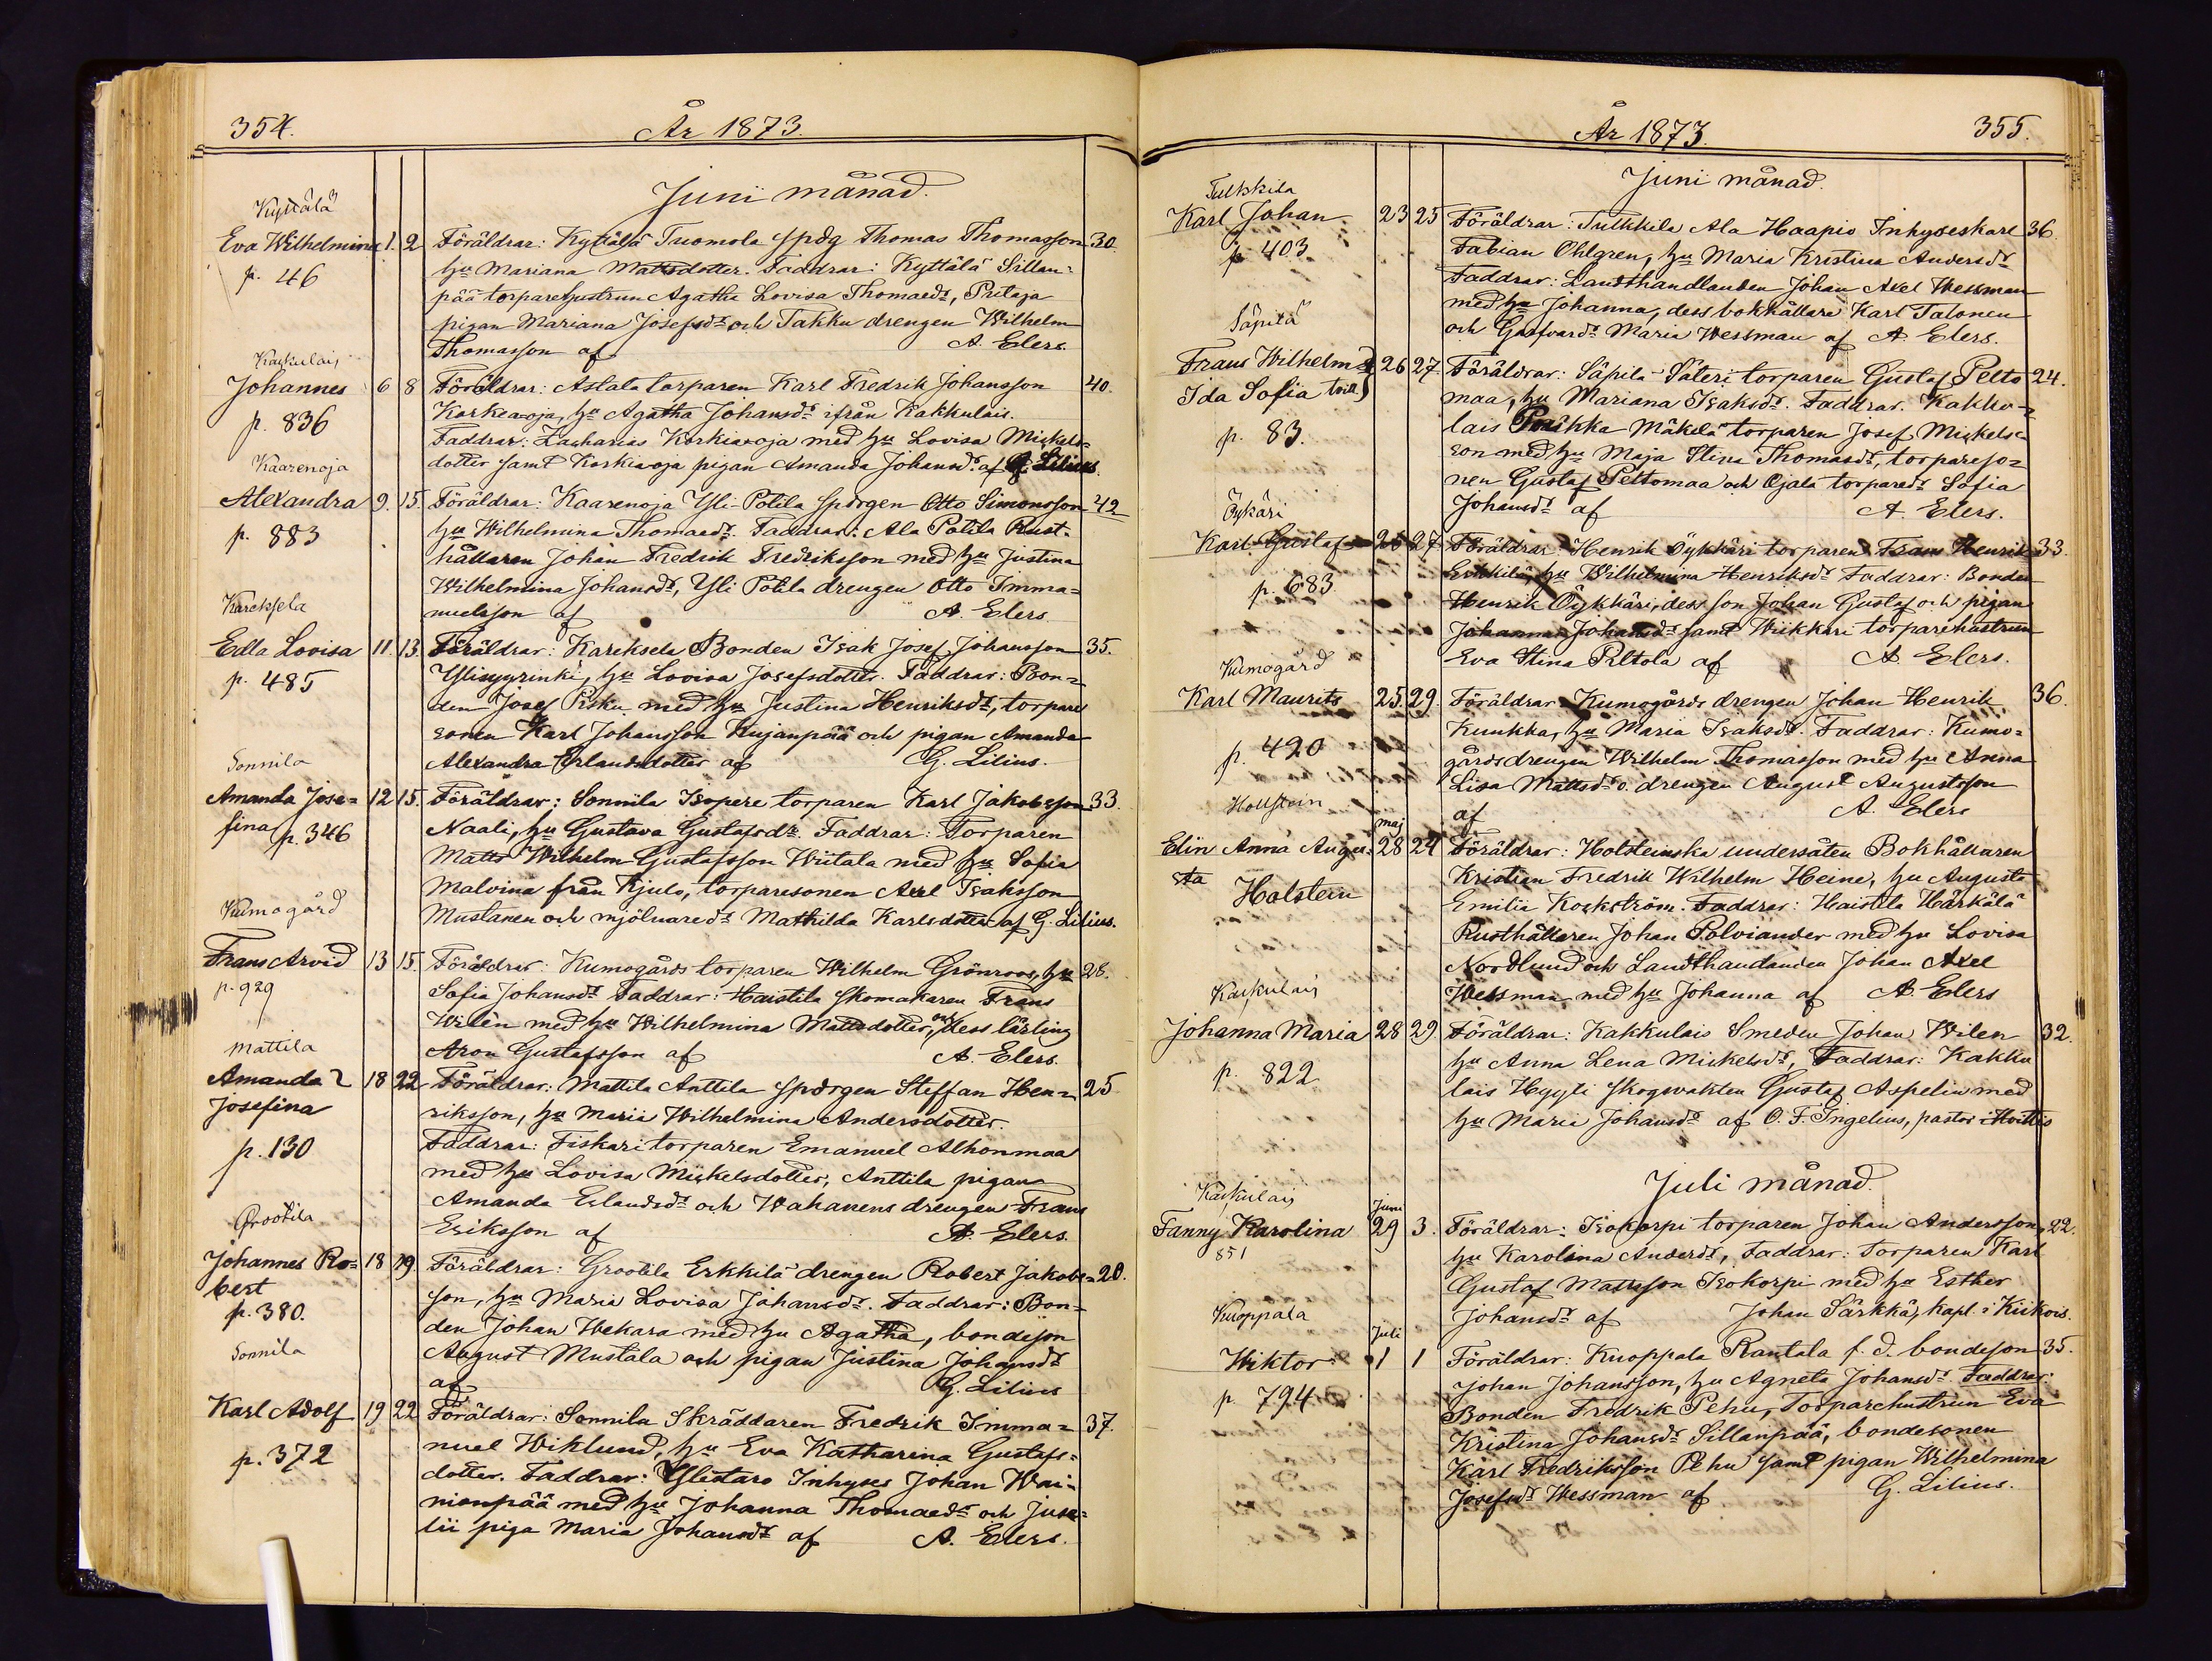 354.
År 1873.
Junii månad.
Kyttälä
Eva Wilhelmina 1. 2 Föräldrar: Kyttälä Tuomola spdg Thomas Thomasson 30.
p. 46
hu Mariana Mattsdotter. Faddrar: Kyttälä Sillan=
pää torparehustrun Agatha Lovisa Thomaedr, Pritaja
pigan Mariana Josefsdr och Takku drengen Wilhelm
Thomasson af A. Elers.
Kakkulais
Johannes 6 8 Föräldrar: Astala torparen Karl Fredrik Johansson 40.
p. 836
Korkeaoja, hu Agatha Johansdr ifrån Kakkulais.
Faddrar: Zacharias Korkiaoja med hu Lovisa Mickels=
dotter samt Korkiaoja pigan Amanda Johansdr af G. Lilius.
Kaarenoja
Alexandra 9. 15. Föräldrar: Kaarenoja Yli-Potila spdrgen Otto Simonsson 42
p. 883
hu Wilhelmina Thomaedr. Faddrar: Ala Potila Rust=
hållaren Johan Fredrik Fredriksson med hu Justina
Wilhelmina Johansdr, Yli Potila drengen Otto Imma=
nuelsson af A. Elers
Karcksela
Edla Lovisa 11. 13. Föräldrar: Karcksela Bonden Isak Josef Johansson 35.
p. 485
Ylisyyrinki, hu Lovisa Josefsdotter. Faddrar: Bon=
den Josef Pisku med hu Justina Henriksdr, torpare
sonen Karl Johansson Kujanpää och pigan Amanda
Alexandra Erlandsdotter af G. Lilius.
Sonnila
Amanda Jose= 12 15. Föräldrar: Sonnila Isopere torparen Karl Jakobsson 33.
fina p. 346
Naali, hu Gustava Gustafsdr. Faddrar: Torparen
Matts Wilhelm Gustafsson Wiitala med hu Sofia
Malvina från Kjulo, torparesonen Axel Isaksson
Mustanen och mjölnaredr Mathilda Karlsdotter af G. Lilius.
Kumogård
Frans Arvid 13 15. Föräldrar: Kumogårds torparen Wilhelm Grönroos, hu 28.
p. 929
Sofia Johansdr Faddrar: Haistila skomakaren Frans
Wilén med hu Wilhelmina Mattsdotter, och dess lärling
Aron Gustafsson af A. Elers.
Mattila
Amanda 18 22 Föräldrar: Mattila Anttila spdrgen Steffan Hen= 25
Josefina
riksson, hu Maria Wilhelmina Andersdotter.
p. 130
Faddrar: Fiskari torparen Emanuel Alhonmaa
med hu Lovisa Mickelsdotter, Anttila pigan
Amanda Erlandsdr och Wahanens drengen Frans
Eriksson af A. Elers.
Grootila
Johannes Ro= 18 19 Föräldrar: Grootila Erkkilä drengen Robert Jakobs= 20.
bert
p. 380.
son, hu Maria Lovisa Johansdr. Faddrar: Bon=
den Johan Wekara med hu Agatha, bondeson
August Mustala och pigan Justina Johansdr
af G. Lilius
Sonnila
Karl Adolf 19 22 Föräldrar: Sonnila Skräddaren Fredrik Imma= 37.
p. 372
nuel Wiklund, hu Eva Katharina Gustafs=
dotter. Faddrar: Ylistaro Inhyses Johan Wai=
nionpää med hu Johanna Thomaedr och Juse=
lii piga Maria Johansdr af A. Elers.
År 1873. 355.
Juni månad.
Tulkkila
Karl Johan 23 25 Föräldrar: Tulkkila Ala Haapio Inhyseskarl 36.
p. 403.
Fabian Ohlgren, hu Maria Kristina Andersdr
Faddrar: Landthandlanden Johan Axel Wessman
med hu Johanna, dess bokhållare Karl Talonen
och Gästvardr Maria Wessman af A. Elers.
Säpilä
Frans Wilhelm & 26 27 Föräldrar: Säpilä Säteri torparen Gustaf Pelto 24.
Ida Sofia tvill
maa, hu Mariana Isaksdr. Faddrar: Kakku=
p. 83.
lais Mäkelä torparen Josef Mickels
son med hu Maja Stina Thomasdr, torpareso=
nen Gustaf Peltomaa och Ojala torparedr Sofia
Johansdr af A. Elers.
Öykäri
Karl Gustaf 26 27 Föräldrar: Henrik Öykkäri torparen Frans Henrik 33.
p. 683
Erkkilä, hu Wilhelmina Henriksdr Faddrar: Bonden
Henrik Öykkäri, dess son Johan Gustaf och pigan
Johanna Johansdr samt Wiikkari torparehustrun
Eva Stina Peltola af A. Elers.
Kumogård
Karl Maurits 25. 29. Föräldrar Kumogårds drengen Johan Henrik 36.
p. 420
Kunkka, hu Maria Isaksdr. Faddrar: Kumo=
gårdsdrengen Wilhelm Thomasson med hu Anna
Lisa Mattsdr o. drengen August Augustsson
af A. Elers
Hollstein
maj
Elin Anna Augu= 28 24 Föräldrar: Holsteinska undersåten Bokhållaren
sta
Holstein
Kristian Fredrik Wilhelm Heine, hu Augusta
Emilia Kockström. Faddrar: Haistila Härkälä
Rusthållaren Johan Polviander med hu Lovisa
Nordlund och Landthandanden Johan Axel
Wessman med hu Johanna af A. Elers
Kakkulais
Johanna Maria 28 29. Föräldrar: Kakkulais Smeden Johan Wilen 32.
p. 822
hu Anna Lena Mickelsdr, Faddrar: Kakku
lais Hyyti skogwakten Gustaf Aspelin med
hu Maria Johansdr af O. F. Ingelius, pastor i Hvittis
Juli månad.
Kakkulais
Juni
Fanny Karolina 29 3. Föräldrar: Isokorpi torparen Johan Andersson, 22.
851
hu Karolina Andersdr, Faddrar: Torparen Karl
Gustaf Mattsson Isokorpi med hu Esther
Johansdr af Johan Särkkä, kapl. i Kiikois.
Kuoppala
Juli
Wiktor 1 1 Föräldrar: Kuoppala Rantala f. d. bondeson 35.
p. 794
Johan Johansson, hu Agneta Johansdr Faddrar:
Bonden Fredrik Pehu, Torparehustrun Eva
Kristina Johansdr Sillanpää, bondesonen
Karl Fredriksson Pehu samt pigan Wilhelmina
Josefsdr Wessman af G. Lilius.